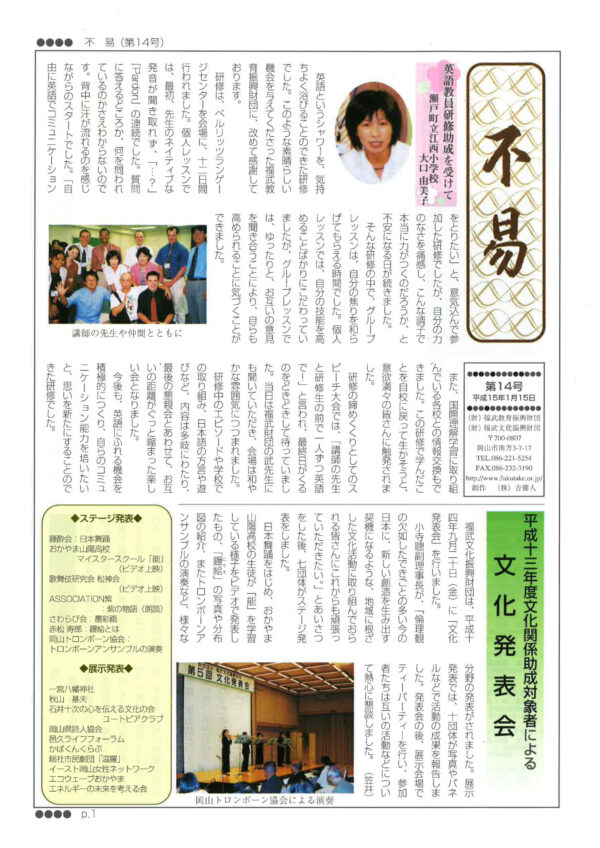 不 易（第14号）
不易
英語教員研修助成を受けて
瀬戸町立江西小学校
大口 由美子
英語というシャワーを、気持
ちよく浴びることのできた研修
でした。このような素晴らしい
機会を与えてくださった福武教
育振興財団に、改めて感謝して
おります。
研修は、ベルリッツランゲー
ジセンターを会場に、十二日間
行われました。個人レッスンで
は、最初、先生のネイティブな
発音が聞き取れず、「…？」
「Pardon」の連続でした。質問
に答えるどころか、何を問われ
ているのかさえわからないので
す。背中に汗が流れるのを感じ
ながらのスタートでした。「自
由に英語でコミュニケーション
をとりたい」と、意気込んで参
加した研修でしたが、自分の力
のなさを痛感し、こんな調子で
本当に力がつくのだろうか、と
不安になる日が続きました。
そんな研修の中で、グループ
レッスンは、自分の焦りを和ら
げてもらえる時間でした。個人
レッスンでは、自分の技能を高
めることばかりにこだわってい
ましたが、グループレッスンで
は、ゆったりと、お互いの意見
を聞き合うことにより、自らも
高められることに気づくことが
できました。
講師の先生や仲間とともに
また、国際理解学習に取り組
んでいる先生との情報交換もで
きました。この研修で学んだこ
とを自校に戻って生かそうと、
意欲満々の皆さんに触発されま
した。
研修の締めくくりとしてのス
ピーチ大会では、「講師の先生
と研修生の前で一人ずつ英語
で！」と言われ、最終日がくる
のをどきどきして待っていまし
た。当日は福武財団の武先生に
も聞いていただき、会場は和や
かな雰囲気につつまれました。
研修中のエピソードや学校で
の取り組み、日本語の方言や遊
びなど、内容は多岐にわたり、
最後の懇親会とあわせて、お互
いの距離がぐっと縮まった楽し
い会となりました。
今後も、英語にふれる機会を
積極的につくり、自らのコミュ
ニケーション能力を培いたい
と、思いを新たにすることので
きた研修でした。
第14号
平成15年1月15日
（財）福武教育振興財団
（財）福武文化振興財団
〒700-0807
岡山市南方3-7-17
TEL.086-221-5254
FAX.086-232-3190
http://www.fukutake.or.jp/
創作 （株）吉備人
平成十三年度文化関係助成対象者による
文化発表会
福武文化振興財団は、平成十
四年九月二十日（金）に「文化
発表会」を行いました。
小寺聰副理事長が、「倫理観
の欠如したできごとの多い今の
日本に、新しい創造を生み出す
契機になるような、地域に根ざ
した文化活動に取り組んでおら
れる皆さんにこれからも頑張っ
ていただきたい。」とあいさつ
をした後、七団体がステージ発
表をしました。
日本舞踊をはじめ、おかやま
山陽高校の生徒が「能」を学習
している様子をビデオで発表し
たもの、「鏝絵」の写真や分布
図の紹介、またトロンボーンア
ンサンブルの演奏など、様々な
分野の発表がされました。展示
発表では、十団体が写真やパネ
ルなどで活動の成果を報告しま
した。発表会の後、展示会場で
ティーパーティーを行い、参加
者たちは互いの活動などについ
て熱心に懇談しました。（笠井）
第5回 文化発表会
岡山トロンボーン協会による演奏
◆ステージ発表◆
藤酔会：日本舞踊
おかやま山陽高校
マイスタースクール「能」
（ビデオ上映）
歌舞伎研究会 松神会
（ビデオ上映）
ASSOCIATION紫
：紫の物語（朗読）
さわらび会：墨彩画
赤松 寿郎：鏝絵とは
岡山トロンボーン協会：
トロンボーンアンサンブルの演奏
◆展示発表◆
一宮八幡神社
秋山 基夫
石井十次の心を伝える文化の会
ユートピアクラブ
岡山県詩人協会
邑久ライフフォーラム
かばくんくらぶ
総社市民劇団「温羅」
イースト岡山女性ネットワーク
エコウェーブおかやま
エネルギーの未来を考える会
p.1